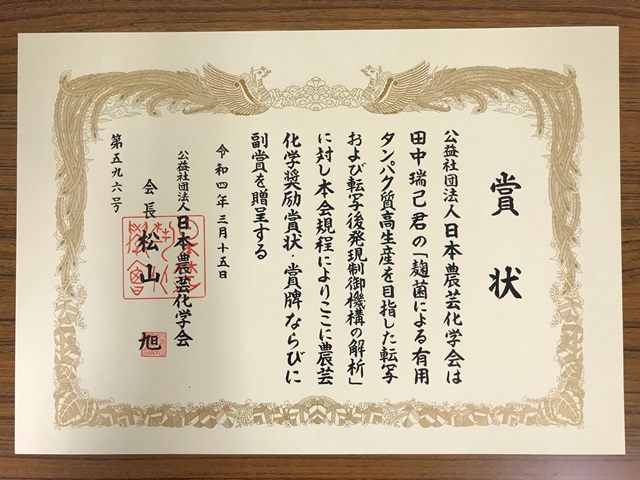 賞状
公益社団法人日本農芸化学会は
田中瑞己君の「麹菌による有用
タンパク質高生産を目指した転写
および転写後発現制御機構の解析」
に対し本会規程によりここに農芸
化学奨励賞状・賞牌ならびに
副賞を贈呈する
令和四年三月十五日
公益社団法人日本農芸化学会
会長 松山 旭
第五九六号